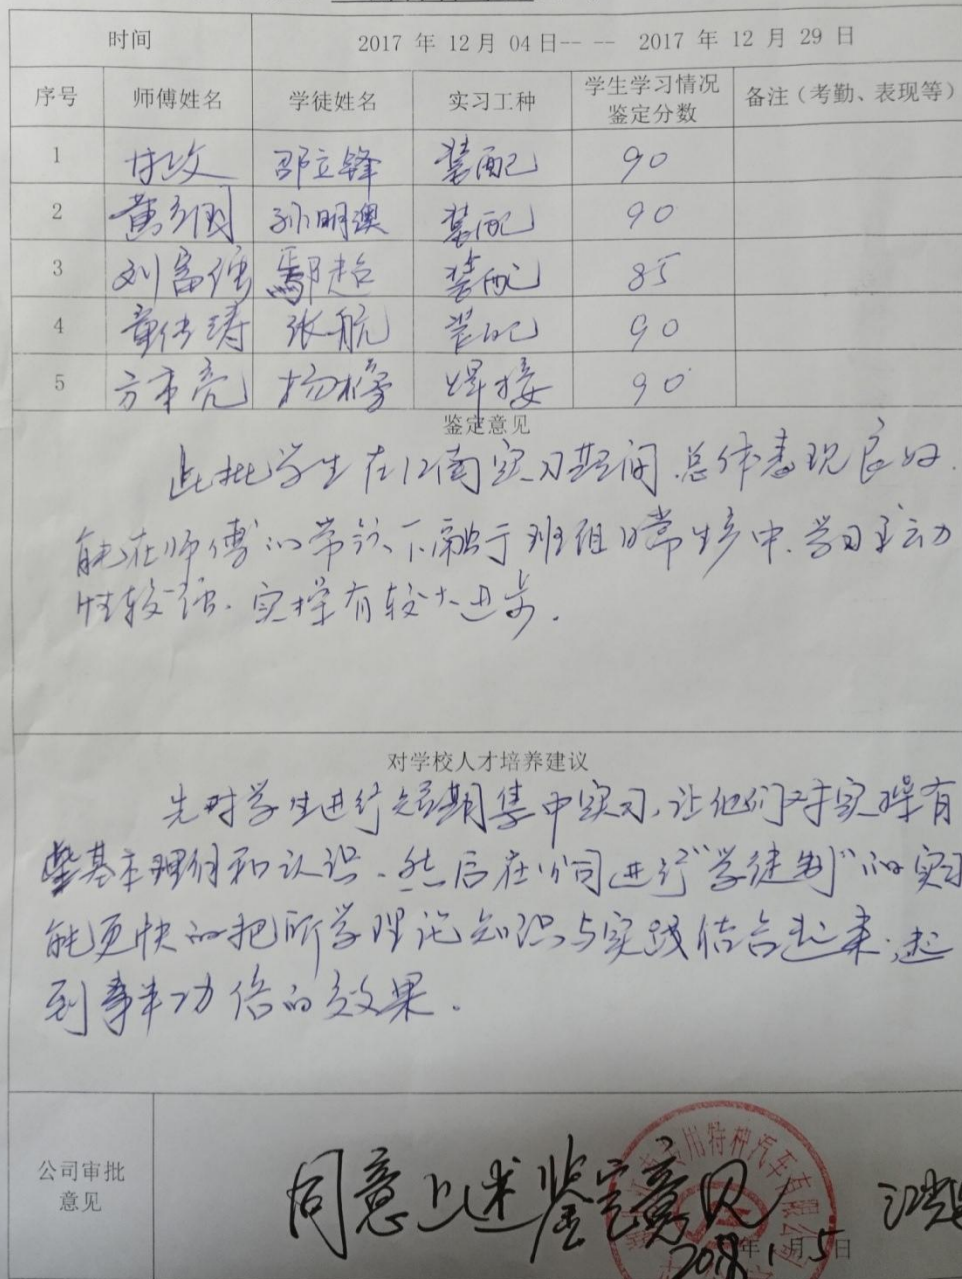 时间 2017 年 12 月 04 日-- -- 2017 年 12 月 29 日
序号 师傅姓名 学徒姓名 实习工种 学生学习情况鉴定分数 备注（考勤、表现等）
1 邵立锋 装配 90
2 孙明澳 装配 90
3 刘富强 鄢超 装配 85
4 章传涛 张航 装配 90
5 方市亮 杨榜 焊接 90
鉴定意见
此批学生在江南实习期间.总体表现良好.
能在师傅的带领下融于班组日常生产中.学习主动
性较强.实操有较大进步.
对学校人才培养建议
先对学生进行短期集中实习,让他们对实操有
些基本理解和认识.然后在公司进行“学徒制”的实习
能更快的把所学理论知识与实践结合起来,起
到事半功倍的效果.
公司审批
意见
同意上述鉴定意见
川特种汽车有限公司
2018年1月5日